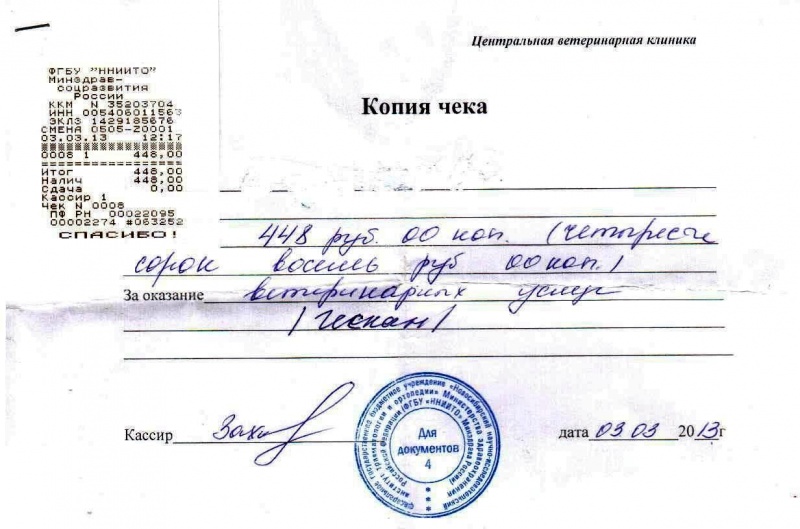 Центральная ветеринарная клиника
ФГБУ "ННИИТО"
Минздрав-
соцразвития
России
ККМ N 35203704
ИНН 005406011563
ЭКЛЗ 1429185676
СМЕНА 0505-Z0001
03.03.13 12:17
0008 1 448,00
Итог 448,00
Налич 448,00
Сдача 0,00
Кассир 1
Чек N 0008
ПФ РН 00022095
00002274 #063252
СПАСИБО!
Копия чека
448 руб. 00 коп. (четыреста
сорок восемь руб 00 коп.)
За оказание ветеринарных услуг
Кассир
Федеральное государственное бюджетное учреждение «Новосибирский научно-исследовательский
институт травматологии и ортопедии» Министерства здравоохранения
Российской Федерации (ФГБУ «ННИИТО» Минздрава России)
Для
документов
4
дата 03 03 2013г